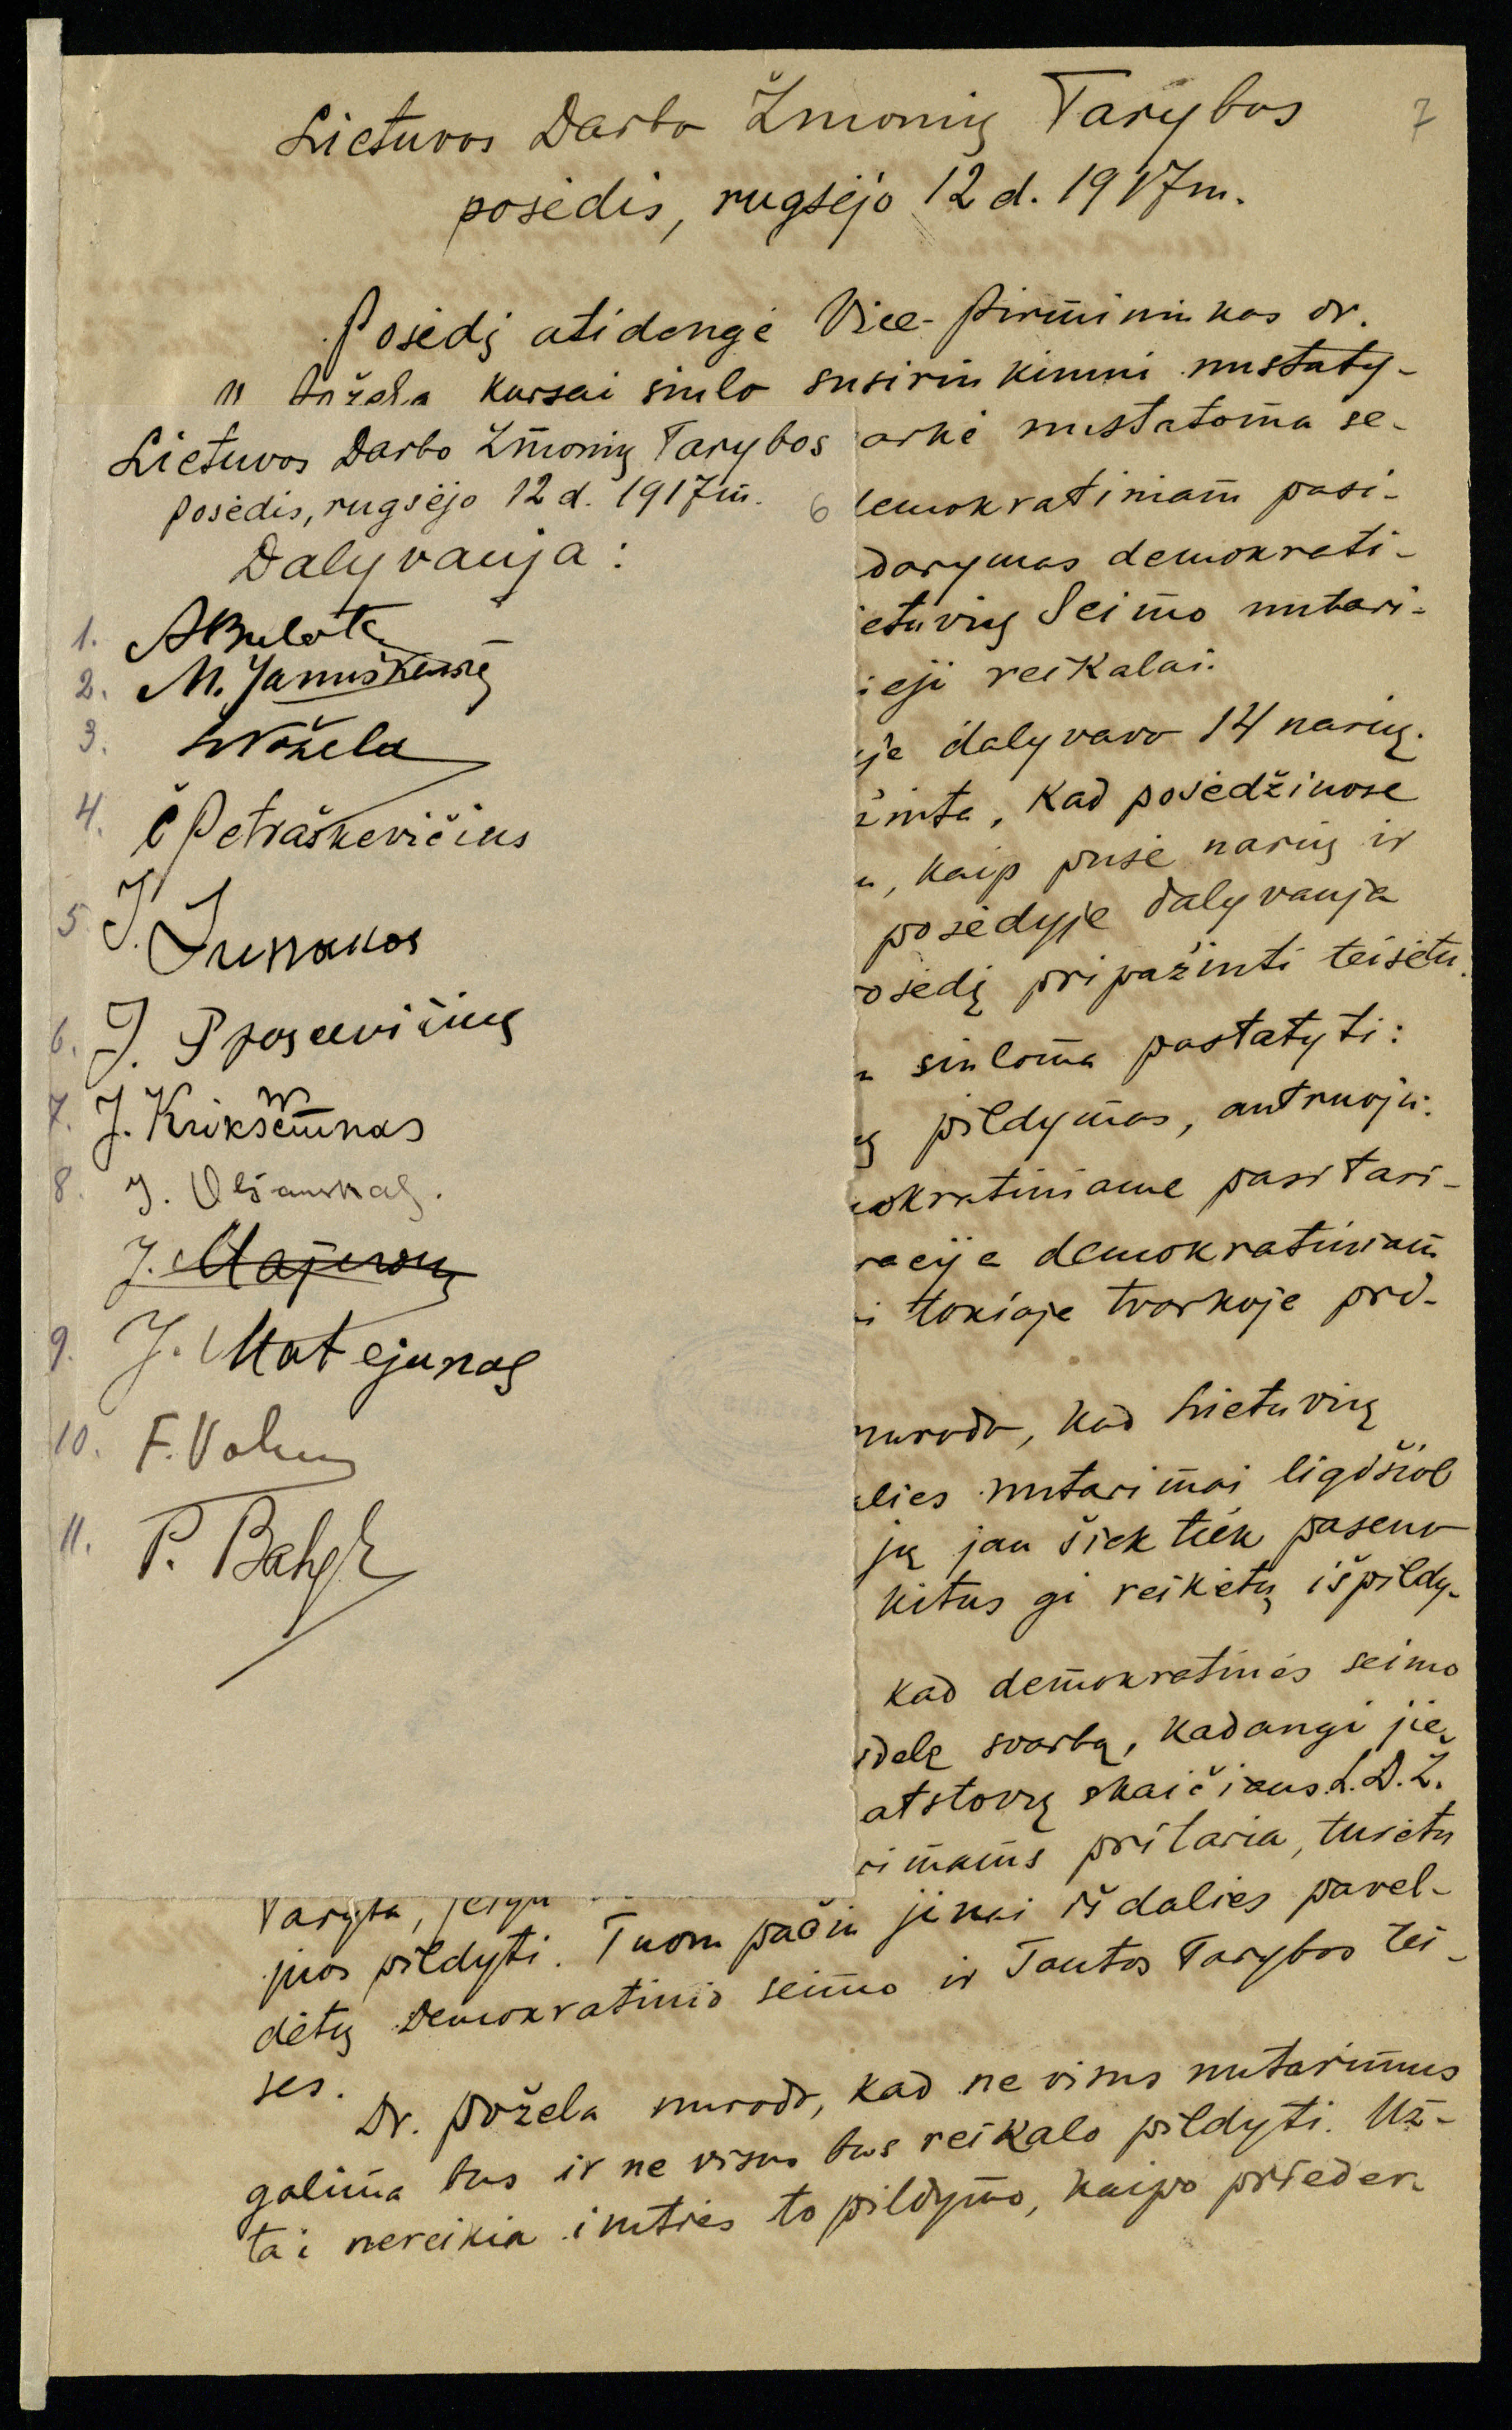 7
Lietuvos Darbo Žmonių Tarybos
posėdis, rugsėjo 12 d. 1917 m.
Posėdį atidengė Vice-pirmininkas dr.
kursai siulo susirinkimui nustaty-
arkė nustatoma se-
demokratiniam pasi-
darymas demokrati-
ietuvių Seimo nutari-
ieji reikalai.
je dalyvavo 14 narių.
žinta, kad posėdžiuose
u, kaip pusė narių ir
posėdyje dalyvauja
osėdį pripažinti teisėtu.
siuloma pastatyti:
ų pildymas, antruoju:
okratiniame pasitari-
racija demokratiniam
i tokioje tvarkoje pri-
nurodo, kad Lietuvių
alies nutarimai ligšiol
jų jau šiek tiek paseno
kitus gi reikėtų išpildy-
kad demokratinės seimo
idelę svarbą, kadangi jie
atstovų skaičiaus L.D.Ž.
rimams pritaria, turėtu
Taryba, jeigu
juos pildyti. Tuom pačiu jinai išdalies pavel-
dėtų Demokratinio seimo ir Tautos Tarybos tei-
ses.
Dr. Požela nurodo, kad ne visus nutarimus
galima bus ir ne visus bus reikalo pildyti. Už-
tai nereikia imties to pildymo, kaipo prieder-
Lietuvos Darbo Žmonių Tarybos
posėdis, rugsėjo 12 d. 1917 m.
6
Dalyvauja:
1. A Bulota
2. M. Januškevičių
3. VPožela
4. Č Petraškevičius
5. J.
6. J.
7. J. Kriksčiunas
8. J. Olšauskas.
J.
9. J. Matejunas
10. F.
11. P.